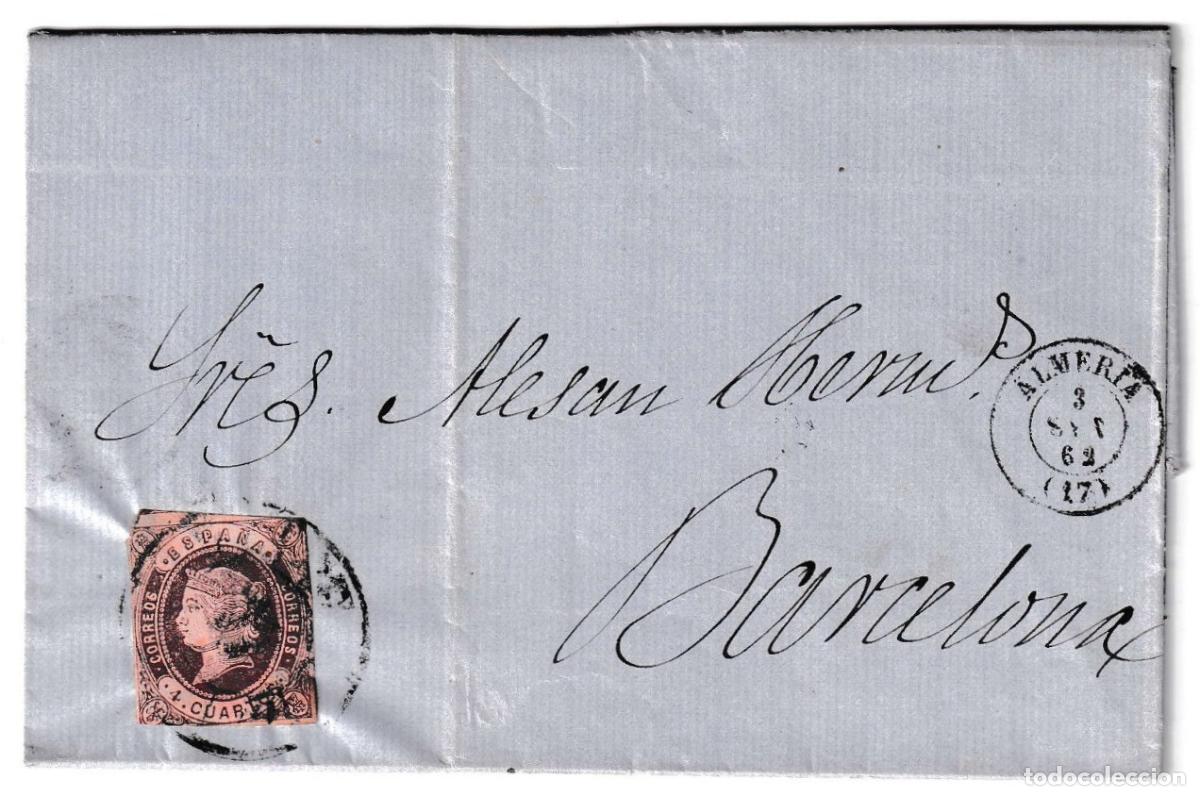 Sres. Alesan Herms.
Barcelona
ALMERIA
3
62
(17)
ESPAÑA
CORREOS
CORREOS
4 CUARTOS
todocoleccion